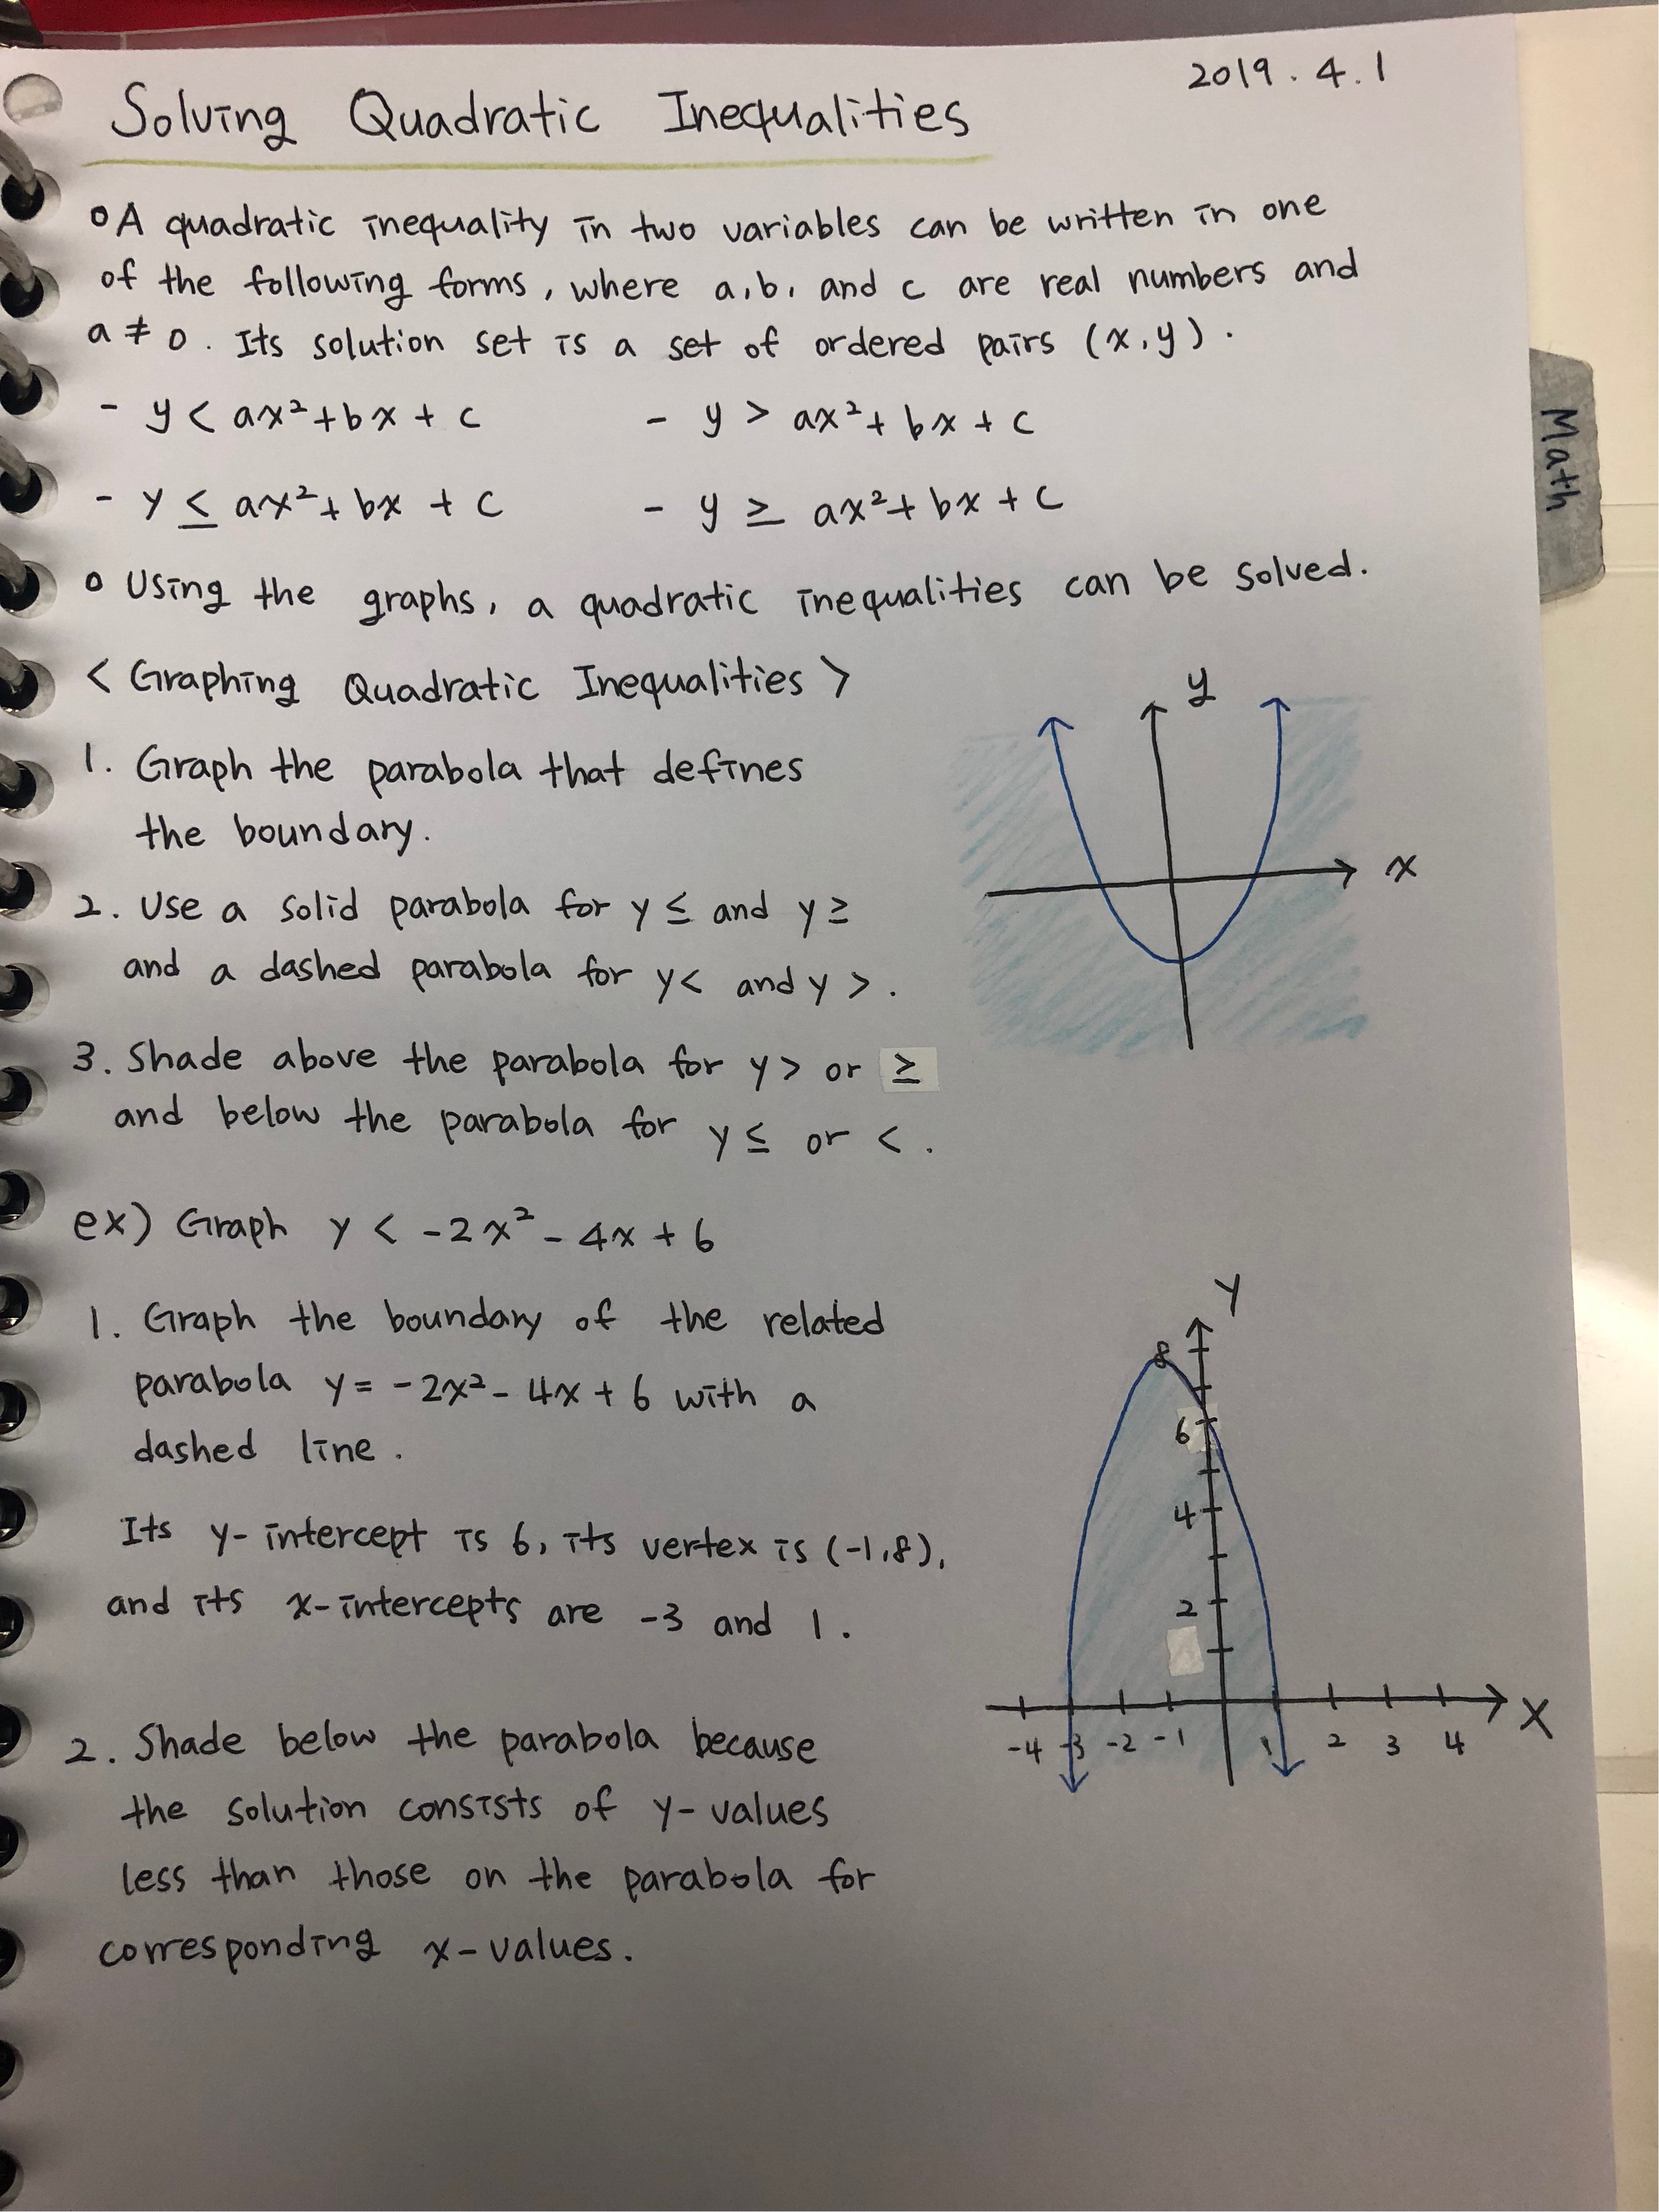 2019. 4. 1
Solving Quadratic Inequalities
o A quadratic inequality in two variables can be written in one
of the following forms, where a, b, and c are real numbers and
a ≠ 0. Its solution set is a set of ordered pairs (x, y).
- y < ax² + bx + c - y > ax² + bx + c
- y ≤ ax² + bx + c - y ≥ ax² + bx + c
o Using the graphs, a quadratic inequalities can be solved.
< Graphing Quadratic Inequalities >
1. Graph the parabola that defines
the boundary.
2. Use a solid parabola for y ≤ and y ≥
and a dashed parabola for y < and y >.
3. Shade above the parabola for y > or ≥
and below the parabola for y ≤ or <.
y
x
ex) Graph y < -2x² - 4x + 6
1. Graph the boundary of the related
parabola y = -2x² - 4x + 6 with a
dashed line.
Its y-intercept is 6, its vertex is (-1, 8),
and its x-intercepts are -3 and 1.
2. Shade below the parabola because
the solution consists of y-values
less than those on the parabola for
corresponding x-values.
Y
8
6
4
2
X
-4 -3 -2 -1 1 2 3 4
Math